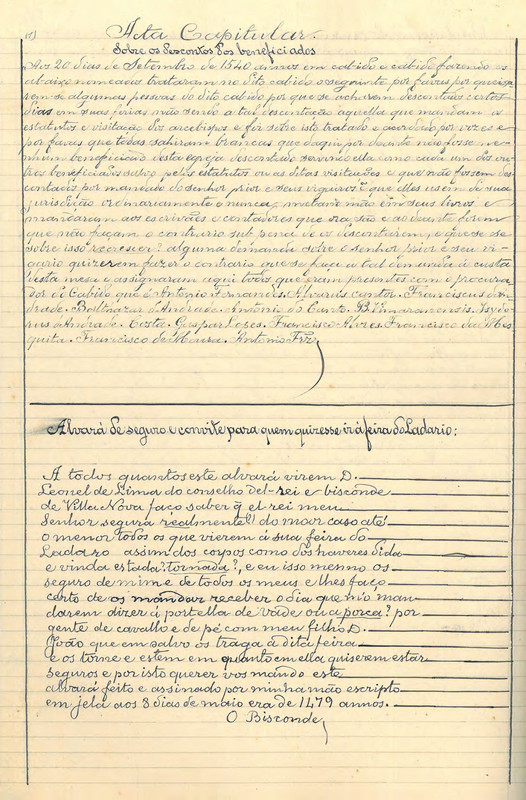 (1) Acta Capitular.
Sobre os descontos dos beneficiados
Aos 20 dias de Setembro de 1540 annos em cabido e cabido fazendo os
abaixo nomeados trataram no dito cabido o seguinte por favas por queixa-
rem-se algumas pessoas do dito cabido por que se acharem descontados certos
dias em suas ferias não sendo a tal descontação aquella que mandam os
estatutos e visitação dos arcebispos e foi sobre isto tratado e acordado por vozes e
por favas que todas sahiram brancas que daqui por deante não fosse ne-
nhum beneficiado desta egreja descontado servindo ella como cada um dos ou-
tros beneficiados salvo pelos estatutos ou as ditas visitações e que não fossem des-
contados por mandado do senhor prior e seus vigairos e que elles usem de sua
jurisdição ordinariamente e nunca metam mão em seus livros e
mandaram aos escrivães e contadores que ora são e ao deante forem
que não façam o contrario sub pena de os descontarem, e que se
sobre isso recrescer? alguma demanda sobre o senhor prior e seu vi-
gario quizerem fazer o contrario que se faça a tal demanda á custa
desta mesa e assignaram aqui todos que eram presentes com o procura-
dor do Cabido que é Antonio Fernandes. Alvarus cantor. Franciscus dan-
drade. Balthazar d'Andrade. Antonio do Canto. B. Vimaranensis. Isydo-
rus d'Andrade. Costa. Gaspar Lopes. Francisco Alvres Francisco da Mes-
quita. Francisco de Moura. Antonio Frz.
Alvará de seguro e convite para quem quizesse ir á feira do Ladario:
A todos quantos este alvará virem D.
Leonel de Lima do conselho del-rei e bisconde
de Villa Nova faço saber q̃ el rei meu
Senhor segura realmente(!) do maor caso até
o menor todos os que vierem á sua feira do
Ladazo assim dos corpos como dos haveres d'ida
e vinda estada? tornada?, e eu isso mesmo os
seguro de mim e de todos os meus e lhes faço
certo de os mandar receber o dia que m'o man-
darem dizer á portella de Vade ou a porca? por
gente de cavallo e de pé com meu filho D.
João que em salvo os traga á dita feira
e os torne e estem em quanto em ella quiserem estar
seguros e por isto querer vos mando este
alvará feito e assinado por minha mão escripto
em jelá aos 8 dias de maio era de 1479 annos.
O Bisconde